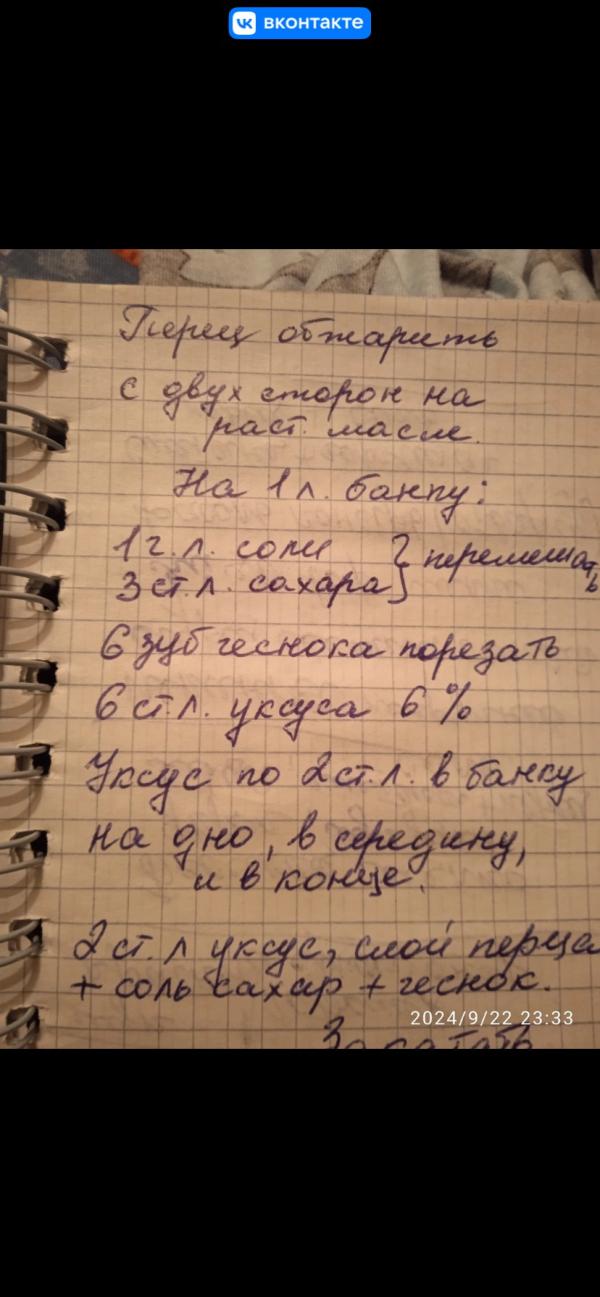 вконтакте
Перец обжарить
с двух сторон на
раст. масле.
На 1 л. банку:
1 ч. л. соли } перемешать
3 ст. л. сахара
6 зуб чеснока порезать
6 ст. л. уксуса 6 %
Уксус по 2 ст. л. в банку
на дно, в середину,
и в конце.
2 ст. л уксус, слой перца
+ соль сахар + чеснок.
2024/9/22 23:33
Закатать